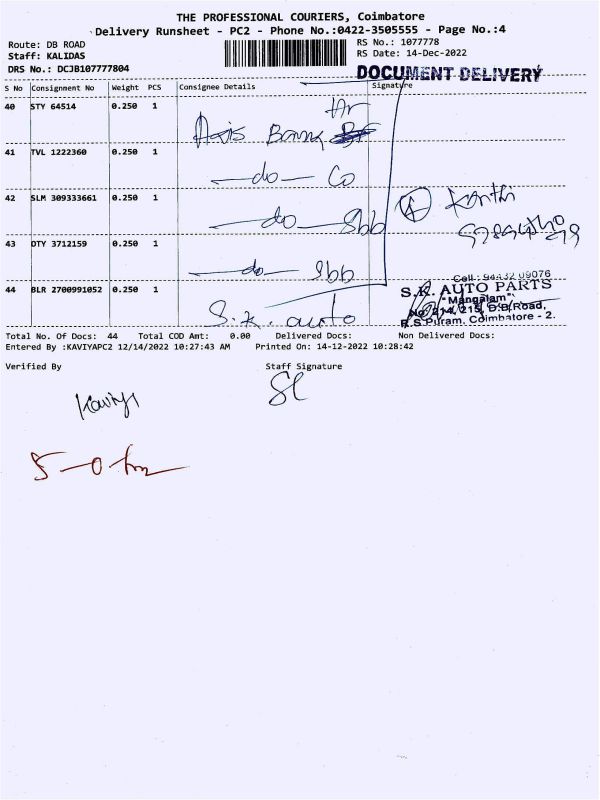 THE PROFESSIONAL COURIERS, Coimbatore
Delivery Runsheet - PC2 - Phone No.:0422-3505555 - Page No.:4
Route: DB ROAD
Staff: KALIDAS
DRS No.: DCJB107777804
RS No.: 1077778
RS Date: 14-Dec-2022
DOCUMENT DELIVERY
S No Consignment No Weight PCS Consignee Details Signature
40 STY 64514 0.250 1
Axis Bank
41 TVL 1222360 0.250 1
—do— Co
42 SLM 309333661 0.250 1
—do— Sbb
4
43 DTY 3712159 0.250 1
—do— Sbb
44 BLR 2700991052 0.250 1
S.K. auto
Cell : 94432 09076
S.K. AUTO PARTS
"Mangalam"
No. 214, 215, D.B.Road,
R.S.Puram, Coimbatore - 2.
Total No. Of Docs: 44 Total COD Amt: 0.00 Delivered Docs: Non Delivered Docs:
Entered By :KAVIYAPC2 12/14/2022 10:27:43 AM Printed On: 14-12-2022 10:28:42
Verified By Staff Signature
Kaviya